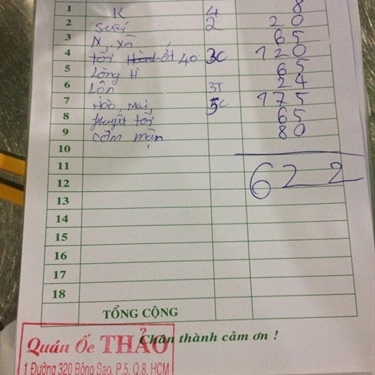 1 K 4 8
2 2 20
3 N, Xò 65
4 Tỏi ớt 40 3C 120
5 Lòng tỉ 65
6 Lồn 3T 24
7 5C 175
8 Huyết tỏi 65
9 Cơm mặn 80
10
11
12 622
13
14
15
16
17
18
TỔNG CỘNG
Chân thành cảm ơn !
Quán Ốc THẢO
1 Đường 320 Bông Sao, P.5, Q.8, HCM